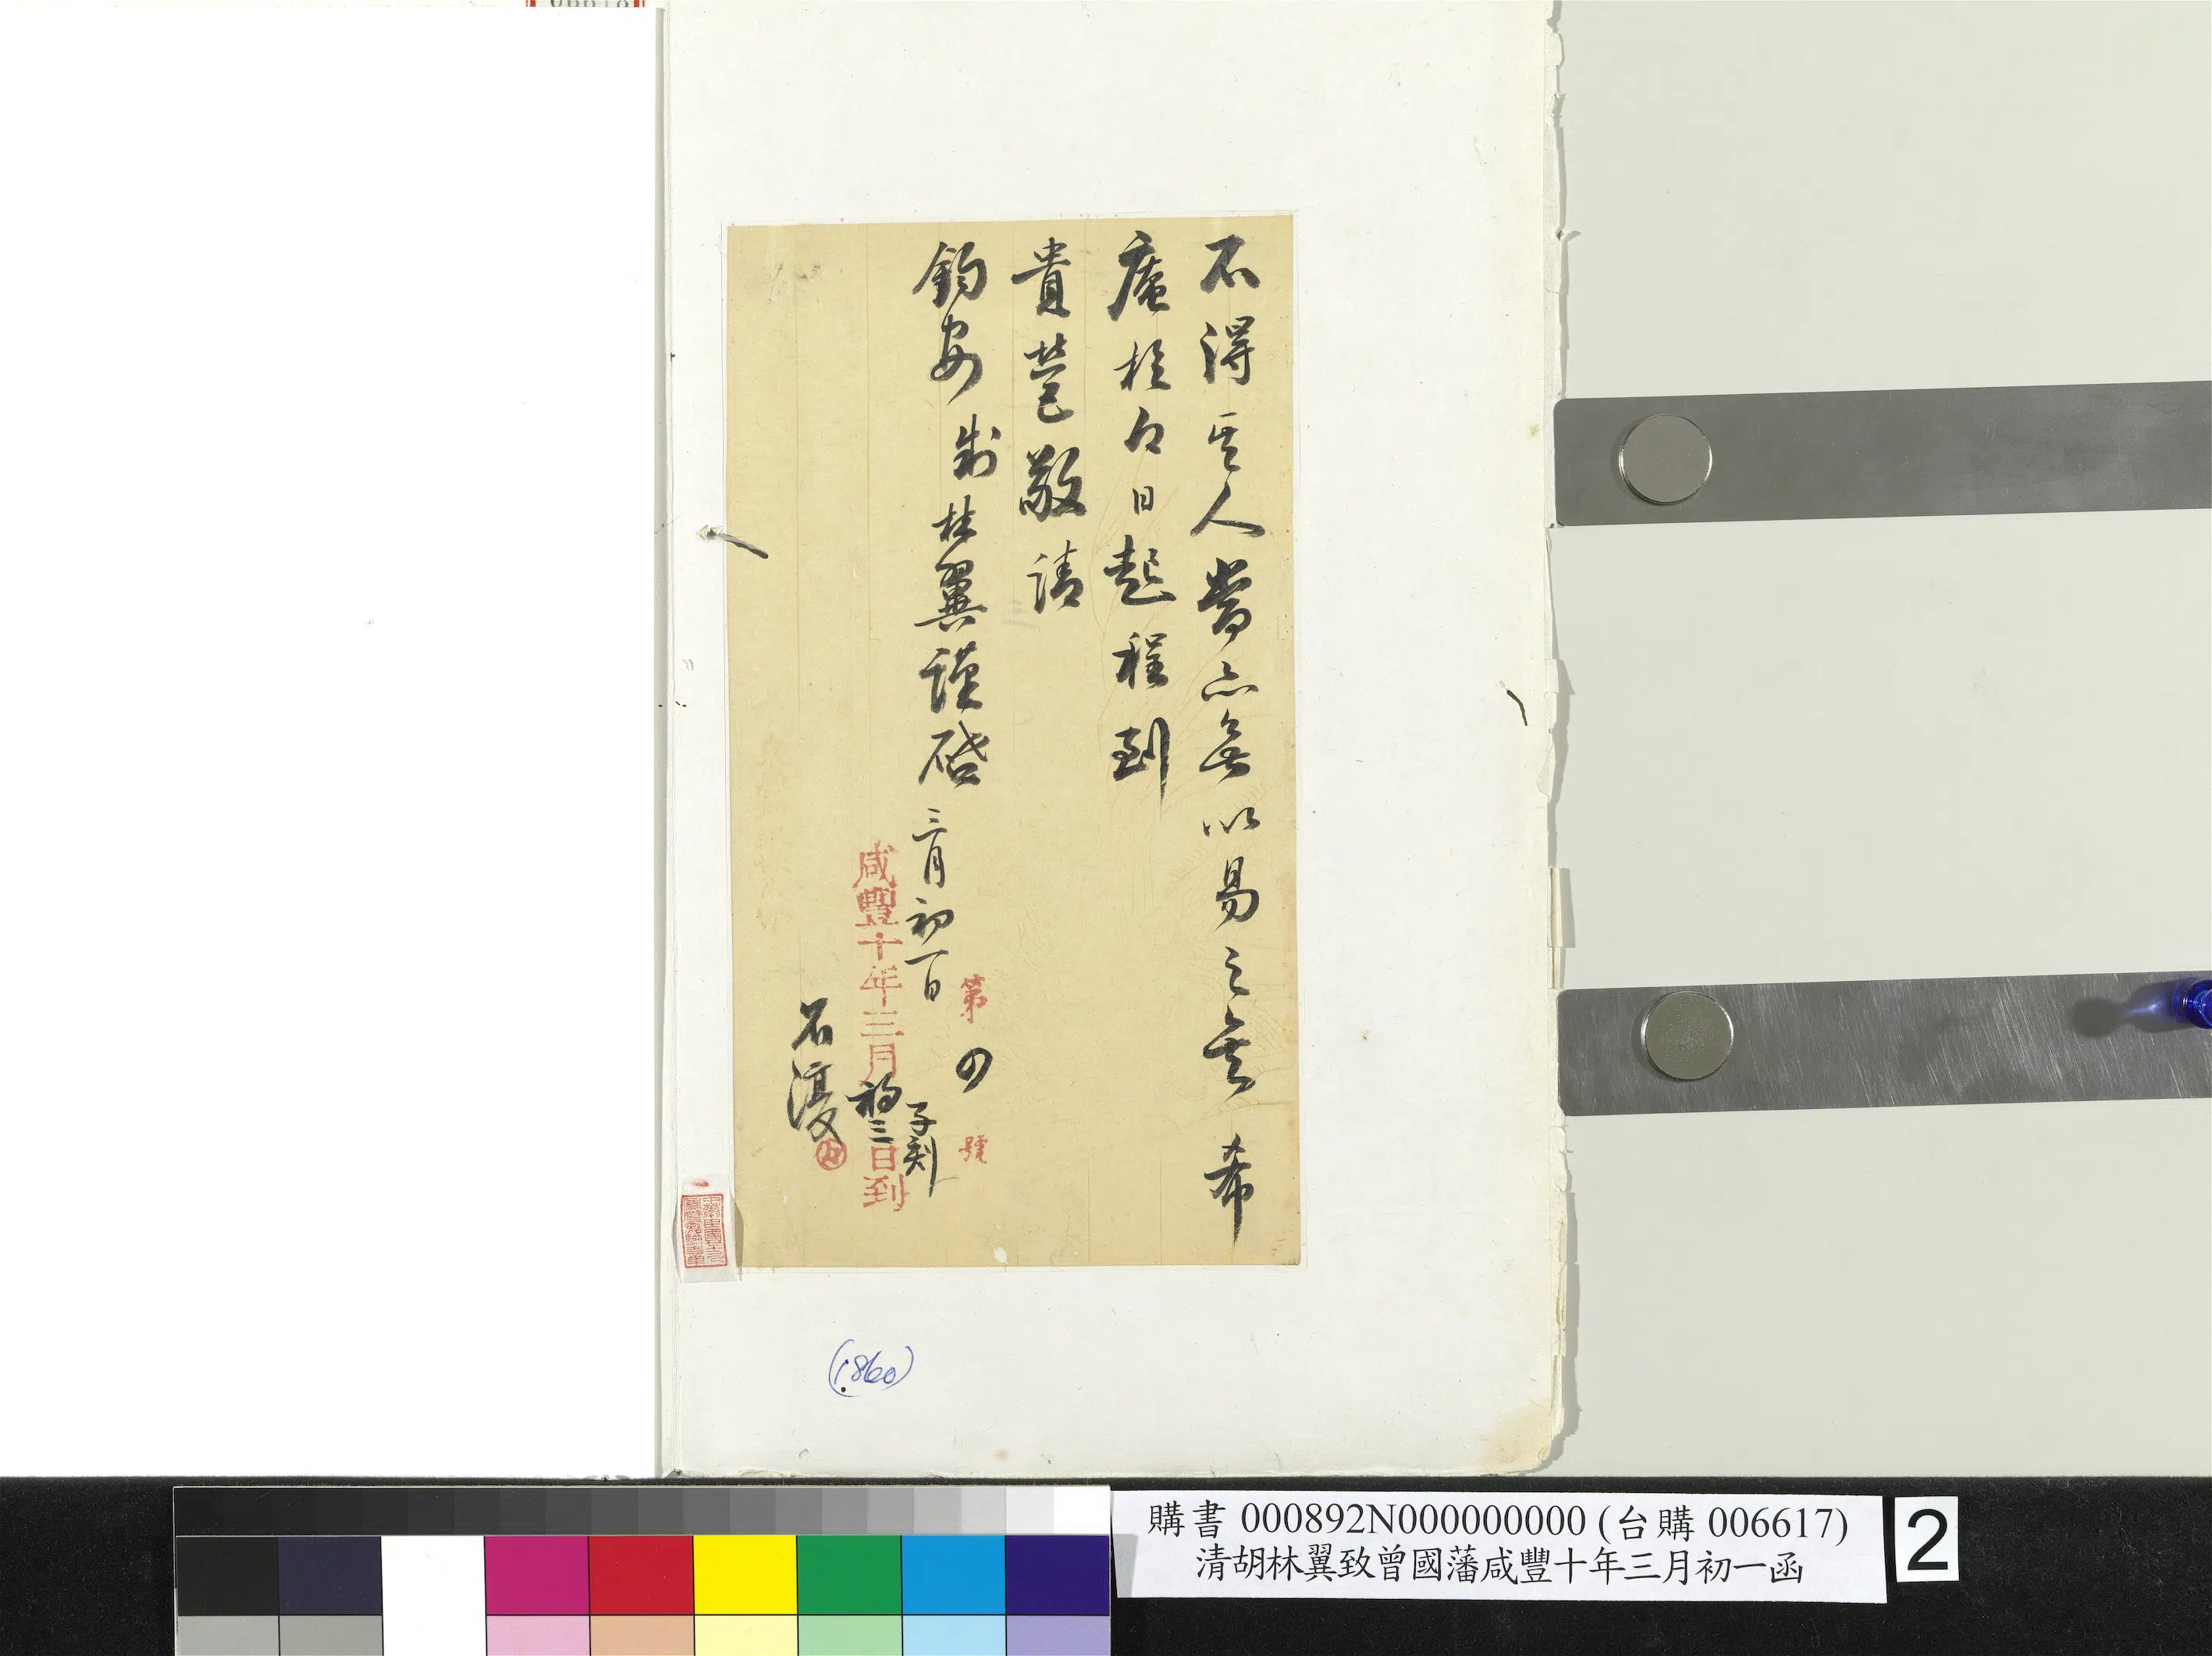 不得其人嘗亦無以易之矣希
庵於今日起程到
貴營敬請
鈞安 制林翼謹啟 三月初一日
子刻
第四號
咸豐十年三月初三日到
石渡
(1860)
購書 000892N000000000 (台購 006617)
清胡林翼致曾國藩咸豐十年三月初一函
2